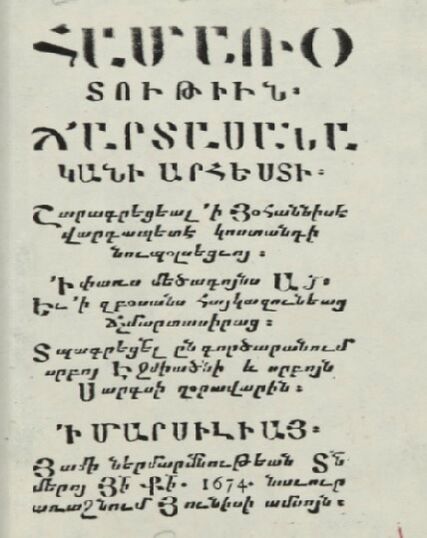 ՀԱՄԱՌՕ
ՏՈՒԹԻՒՆ։
ՃԱՐՏԱՍԱՆԱ
ԿԱՆԻ ԱՐՀԵՍՏԻ։
Շարագրեցեալ ՚ի Յօհաննիսէ
վարդապետէ կոստանդի
նուպօլսեցւոյ։
՚Ի փառս մեծագոյնս Ա յ։
Եւ ՚ի զբօսանս Հայկազունեաց
Ճշմարտասիրաց։
Տպագրեցել ընդ գործարանում
սրբոյ Էջմիածնի և սրբոյն
Սարգսի զօրավարին։
՚Ի ՄԱՐՍԻԼԻԱՅ։
Յամի ներմարմնութեան Տն
մերոյ Յի Քի 1674.
առաջնում Յունիսի ամսոյն։